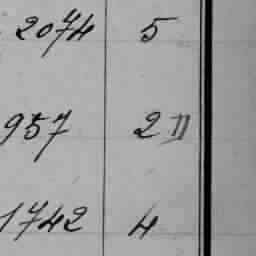 2074 5
957 2 II
1742 4